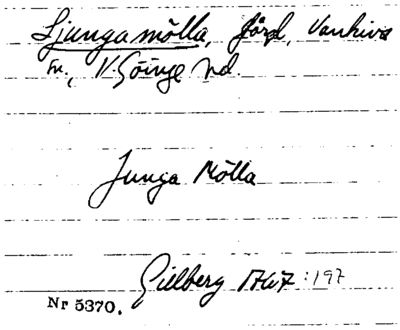 Ljungamölla,försv., Vankiva
sn., V. Göinge hd.
Junga Mölla
Gillberg 1767 :197
Nr 5370.